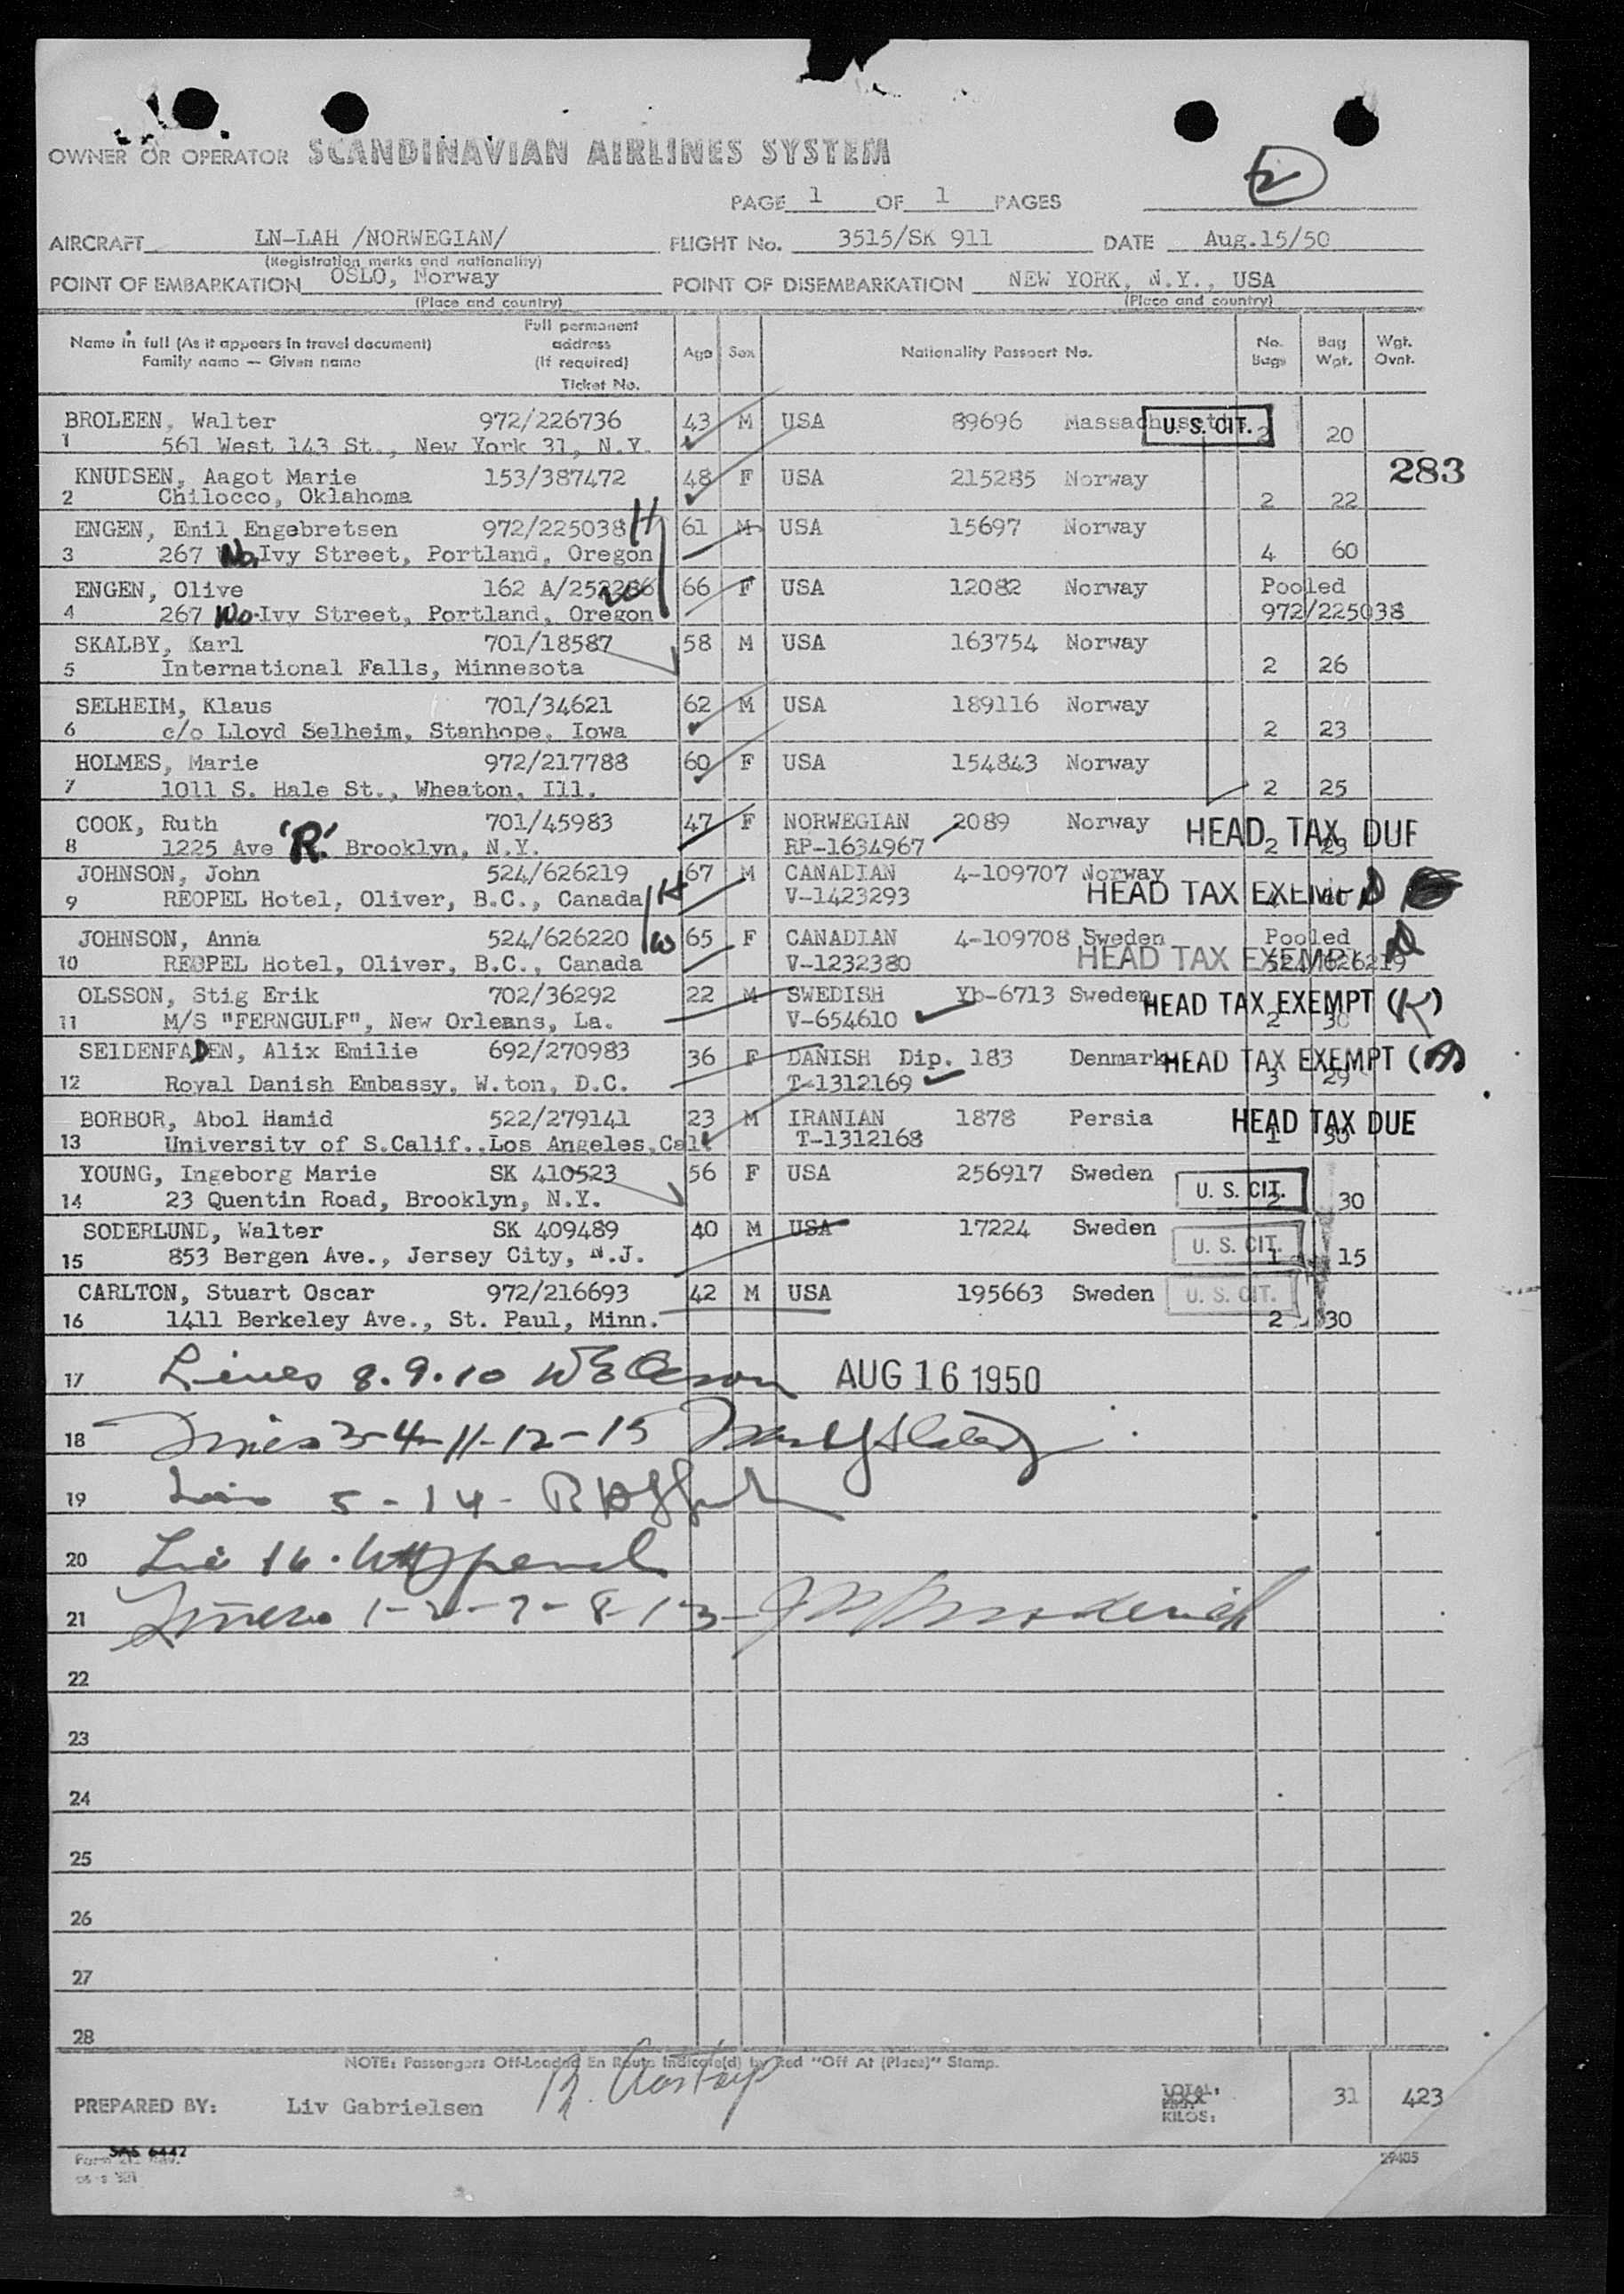 OWNER OR OPERATOR SCANDINAVIAN AIRLINES SYSTEM
2
PAGE 1 OF 1 PAGES
AIRCRAFT LN-LAH /NORWEGIAN/ FLIGHT No. 3515/SK 911 DATE Aug.15/50
(Registration marks and nationality)
POINT OF EMBARKATION OSLO, Norway POINT OF DISEMBARKATION NEW YORK, N.Y., USA
(Place and country) (Place and country)
Name in full (As it appears in travel document) Family name — Given name Full permanent address (If required) Ticket No. Age Sex Nationality Passport No. No. Bags Bag Wgt. Wgt. Ovnt.
BROLEEN, Walter 972/226736 43 M USA 89696 Massachusetts U. S. CIT. 2 20
1 561 West 143 St., New York 31, N.Y.
283
KNUDSEN, Aagot Marie 153/387472 48 F USA 215285 Norway
2 Chilocco, Oklahoma 2 22
ENGEN, Emil Engebretsen 972/225038 H 61 M USA 15697 Norway
3 267 No. Ivy Street, Portland, Oregon 4 60
ENGEN, Olive 162 A/252286 W 66 F USA 12082 Norway Pooled
4 267 No. Ivy Street, Portland, Oregon 972/225038
SKALBY, Karl 701/18587 58 M USA 163754 Norway
5 International Falls, Minnesota 2 26
SELHEIM, Klaus 701/34621 62 M USA 189116 Norway
6 c/o Lloyd Selheim, Stanhope, Iowa 2 23
HOLMES, Marie 972/217788 60 F USA 154843 Norway
7 1011 S. Hale St., Wheaton, Ill. 2 25
COOK, Ruth 701/45983 47 F NORWEGIAN 2089 Norway HEAD TAX DUE
8 1225 Ave 'R.' Brooklyn, N.Y. RP-1634967 2 23
JOHNSON, John 524/626219 H 67 M CANADIAN 4-109707 Norway
9 REOPEL Hotel, Oliver, B.C., Canada V-1423293 HEAD TAX EXEMPT
JOHNSON, Anna 524/626220 W 65 F CANADIAN 4-109708 Sweden Pooled
10 REOPEL Hotel, Oliver, B.C., Canada V-1232380 HEAD TAX EXEMPT 524/626219
OLSSON, Stig Erik 702/36292 22 M SWEDISH Yb-6713 Sweden HEAD TAX EXEMPT (K)
11 M/S "FERNGULF", New Orleans, La. V-654610 2 30
SEIDENFADEN, Alix Emilie 692/270983 36 F DANISH Dip. 183 Denmark HEAD TAX EXEMPT (A)
12 Royal Danish Embassy, W.ton, D.C. T-1312169 3 29
BORBOR, Abol Hamid 522/279141 23 M IRANIAN 1878 Persia HEAD TAX DUE
13 University of S.Calif.,Los Angeles,Cal. T-1312168 1 30
YOUNG, Ingeborg Marie SK 410523 56 F USA 256917 Sweden U. S. CIT.
14 23 Quentin Road, Brooklyn, N.Y. 2 30
SODERLUND, Walter SK 409489 40 M USA 17224 Sweden U. S. CIT.
15 853 Bergen Ave., Jersey City, N.J. 1 15
CARLTON, Stuart Oscar 972/216693 42 M USA 195663 Sweden U. S. CIT.
16 1411 Berkeley Ave., St. Paul, Minn. 2 30
17 Lines 8.9.10 AUG 16 1950
18 Lines 3-4-11-12-15
19 Line 5-14-
20 Line 16.
21 Lines 1-2-7-8-13-
22
23
24
25
26
27
28
NOTE: Passengers Off-Loaded En Route Indicate(d) by Red "Off At (Place)" Stamp.
PREPARED BY: Liv Gabrielsen TOTAL: KILOS: 31 423
SAS 6442
29405